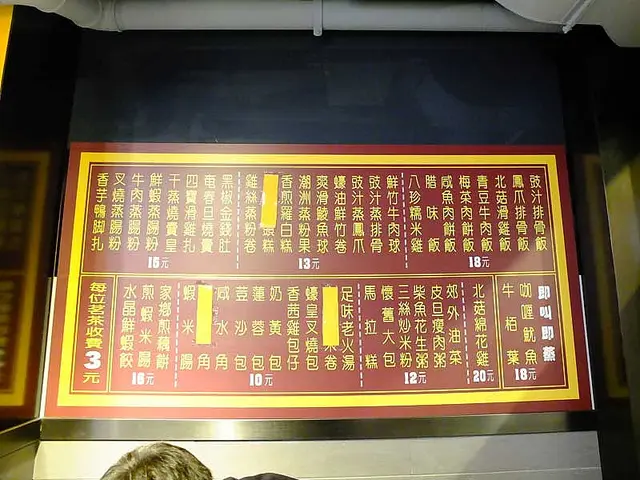 豉汁排骨飯
鳳爪排骨飯
北菇滑雞飯
青豆牛肉飯
梅菜肉餅飯
咸魚肉餅飯
臘味飯
八珍糯米雞
18元
鮮竹牛肉球
豉汁蒸排骨
豉汁蒸鳳爪
蠔油鮮竹卷
爽滑鯪魚球
潮洲蒸粉果
香煎蘿白糕
糕
雞絲蒸粉卷
13元
黑椒金錢肚
奄春旦燒賣
四寶滑雞扎
干蒸燒賣皇
鮮蝦蒸腸粉
牛肉蒸腸粉
叉燒蒸腸粉
香芋鴨腳扎
15元
即叫即蒸
咖喱魷魚
牛栢葉
18元
北菇綿花雞
20元
郊外油菜
皮旦瘦肉粥
柴魚花生粥
三絲炒米粉
懷舊大包
馬拉糕
12元
足味老火湯
卷
蠔皇叉燒包
香茜雞包仔
奶黃包
蓮蓉包
荳沙包
咸水角
角
蝦米腸
10元
家鄉煎藕餅
煎蝦米腸
水晶鮮蝦餃
16元
每位茗茶收費3元